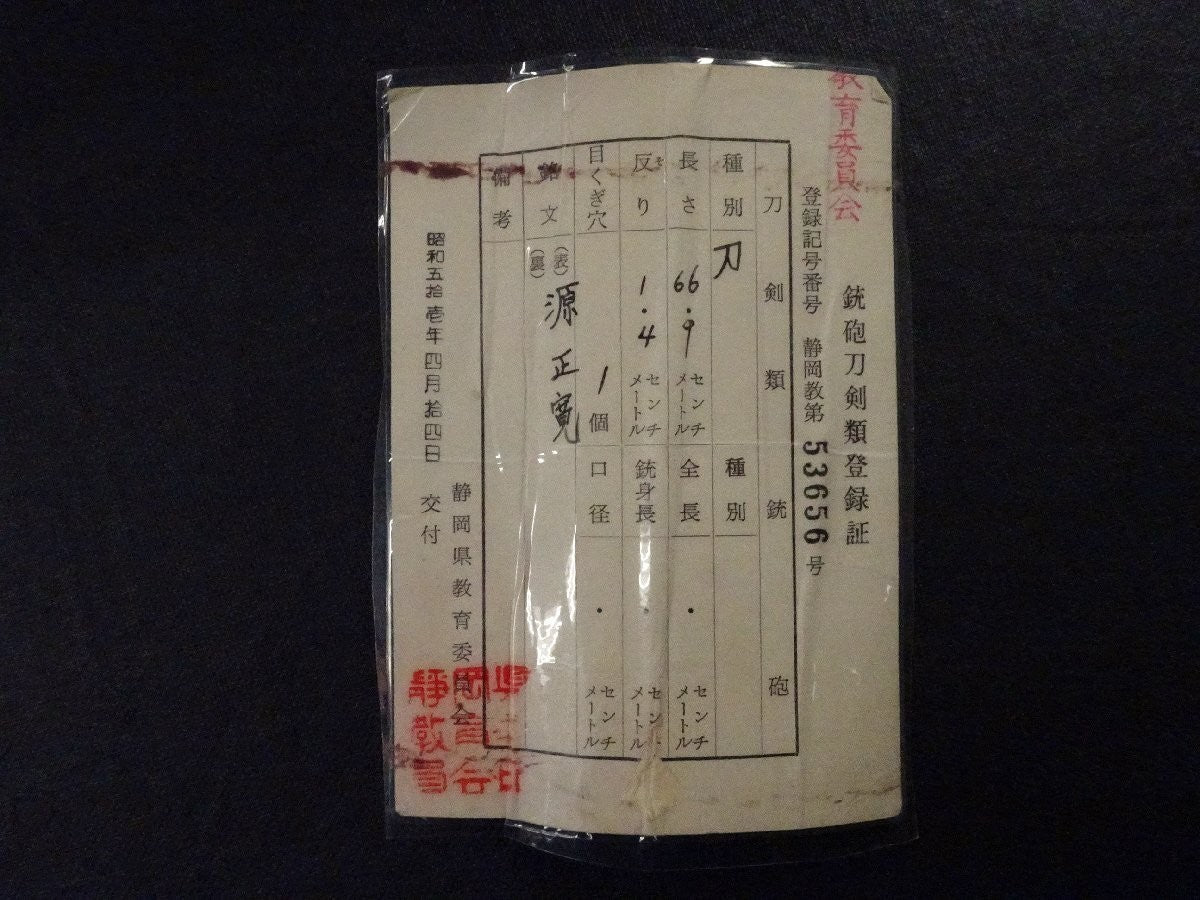 教育委員会
銃砲刀剣類登録証
登録記号番号 静岡教第 53656 号
刀剣類 銃砲
種別 刀 種別
長さ 66.9 センチメートル 全長 . センチメートル
反り 1.4 センチメートル 銃身長 . センチメートル
目くぎ穴 1 個 口径 . センチメートル
銘文 (表) 源正寛
(裏)
備考
静岡県教育委員会
昭和五拾壱年四月拾四日 交付